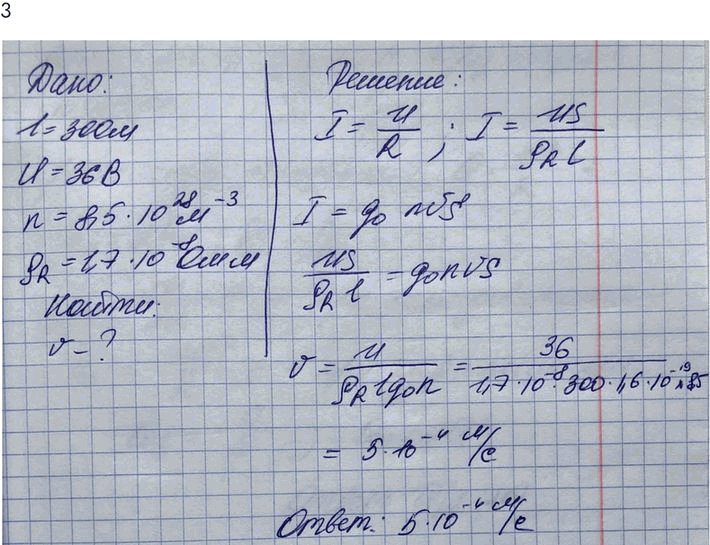 3
Дано:
l = 300м
U = 36В
n = 8,5 · 10²⁸ м⁻³
ρ_R = 1,7 · 10⁻⁸ Омм
Найти:
v - ?
Решение:
I = U/R ; I = US/ρ_R l
I = q₀ nvS
US/ρ_R l = q₀nvS
v = U/ρ_R l q₀ n = 36/1,7 · 10⁻⁸ · 300 · 1,6 · 10⁻¹⁹
= 5 · 10⁻⁴ м/с
Ответ: 5 · 10⁻⁴ м/с